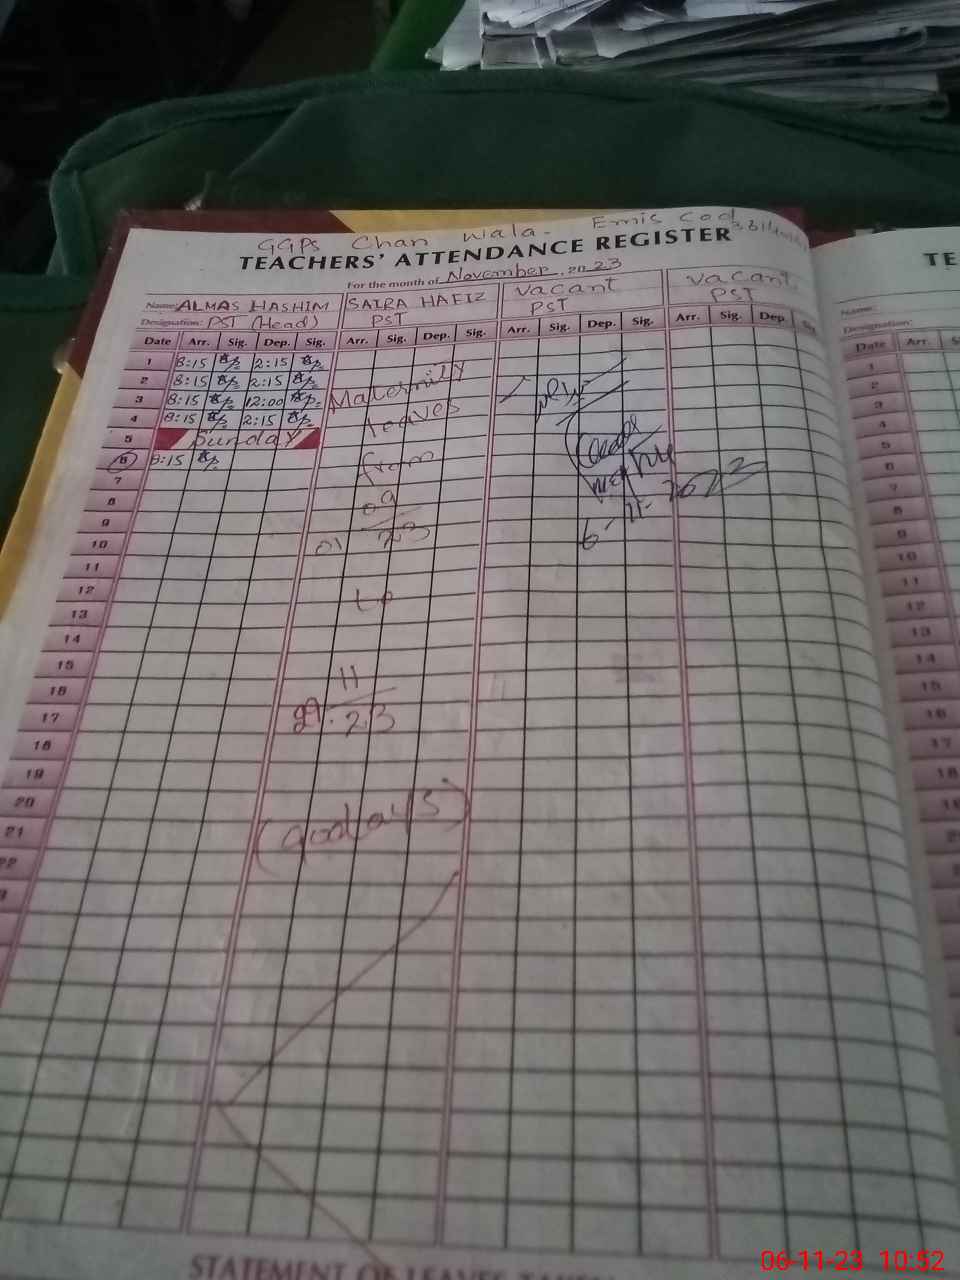 GGPS Chan Wala. Emis Cod
TEACHERS' ATTENDANCE REGISTER
For the month of November, 2023
Name: ALMAS HASHIM SAIRA HAFIZ vacant vacant
Designation: PST (Head) PST PST PST
Date Arr. Sig. Dep. Sig. Arr. Sig. Dep. Sig. Arr. Sig. Dep. Sig. Arr. Sig. Dep. Sig.
1 8:15 2:15
2 8:15 2:15
3 8:15 12:00 Maternity
4 8:15 2:15 leaves
5 Sunday
6 8:15 from
7
8 09
9 23
10 01
11
12 to
13
14
15
16 11
17 29. 23
18
19
20
21 (90days)
22
6-11-2023
TE
Name:
Designation:
Date Arr. S
1
2
3
4
5
6
7
8
9
10
11
12
13
14
15
16
17
18
STATEMENT OF LEAVES TAKEN
06-11-23 10:52